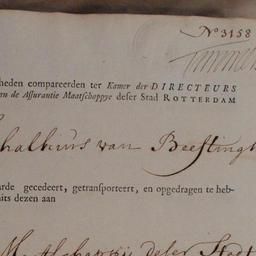 No 3158
heden compareerden ter Kamer der DIRECTEURS
an de Assurantie Maatschappye deser Stad ROTTERDAM
van Beefting
arde gecedeert, getransporteert, en opgedragen te heb-
its dezen aan
Maatschappij deser Stadt